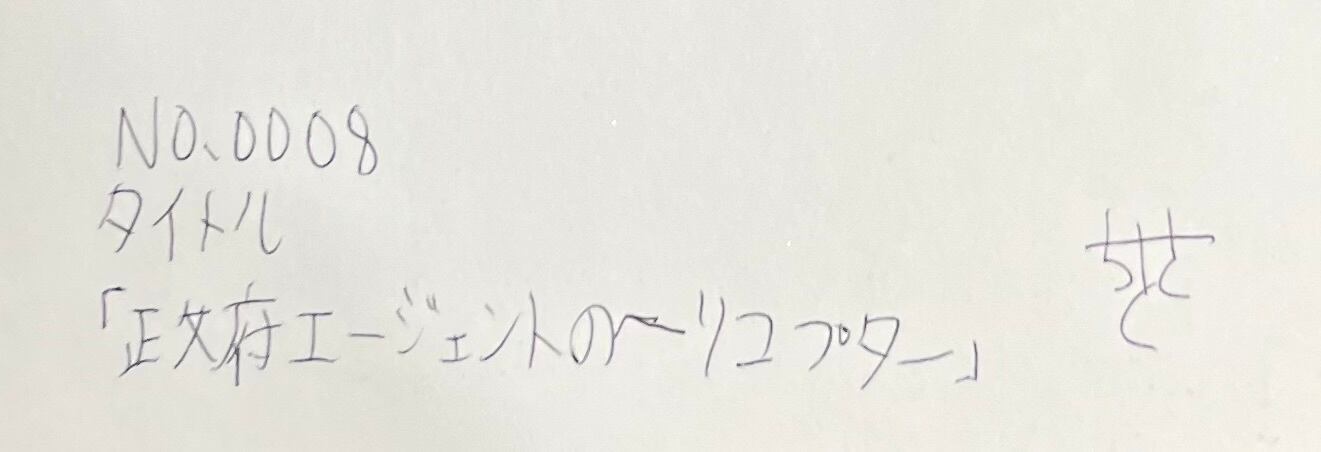 NO.0008
タイトル
「政府エージェントのヘリコプター」